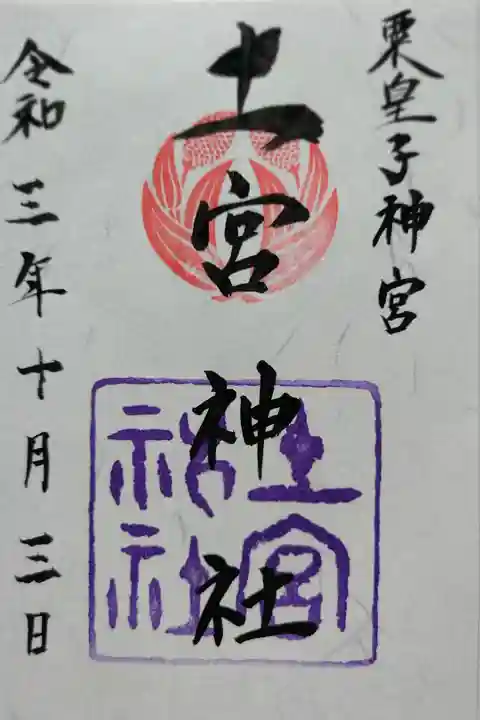 粟皇子神宮
土宮神社
土宮神社
令和三年十月三日